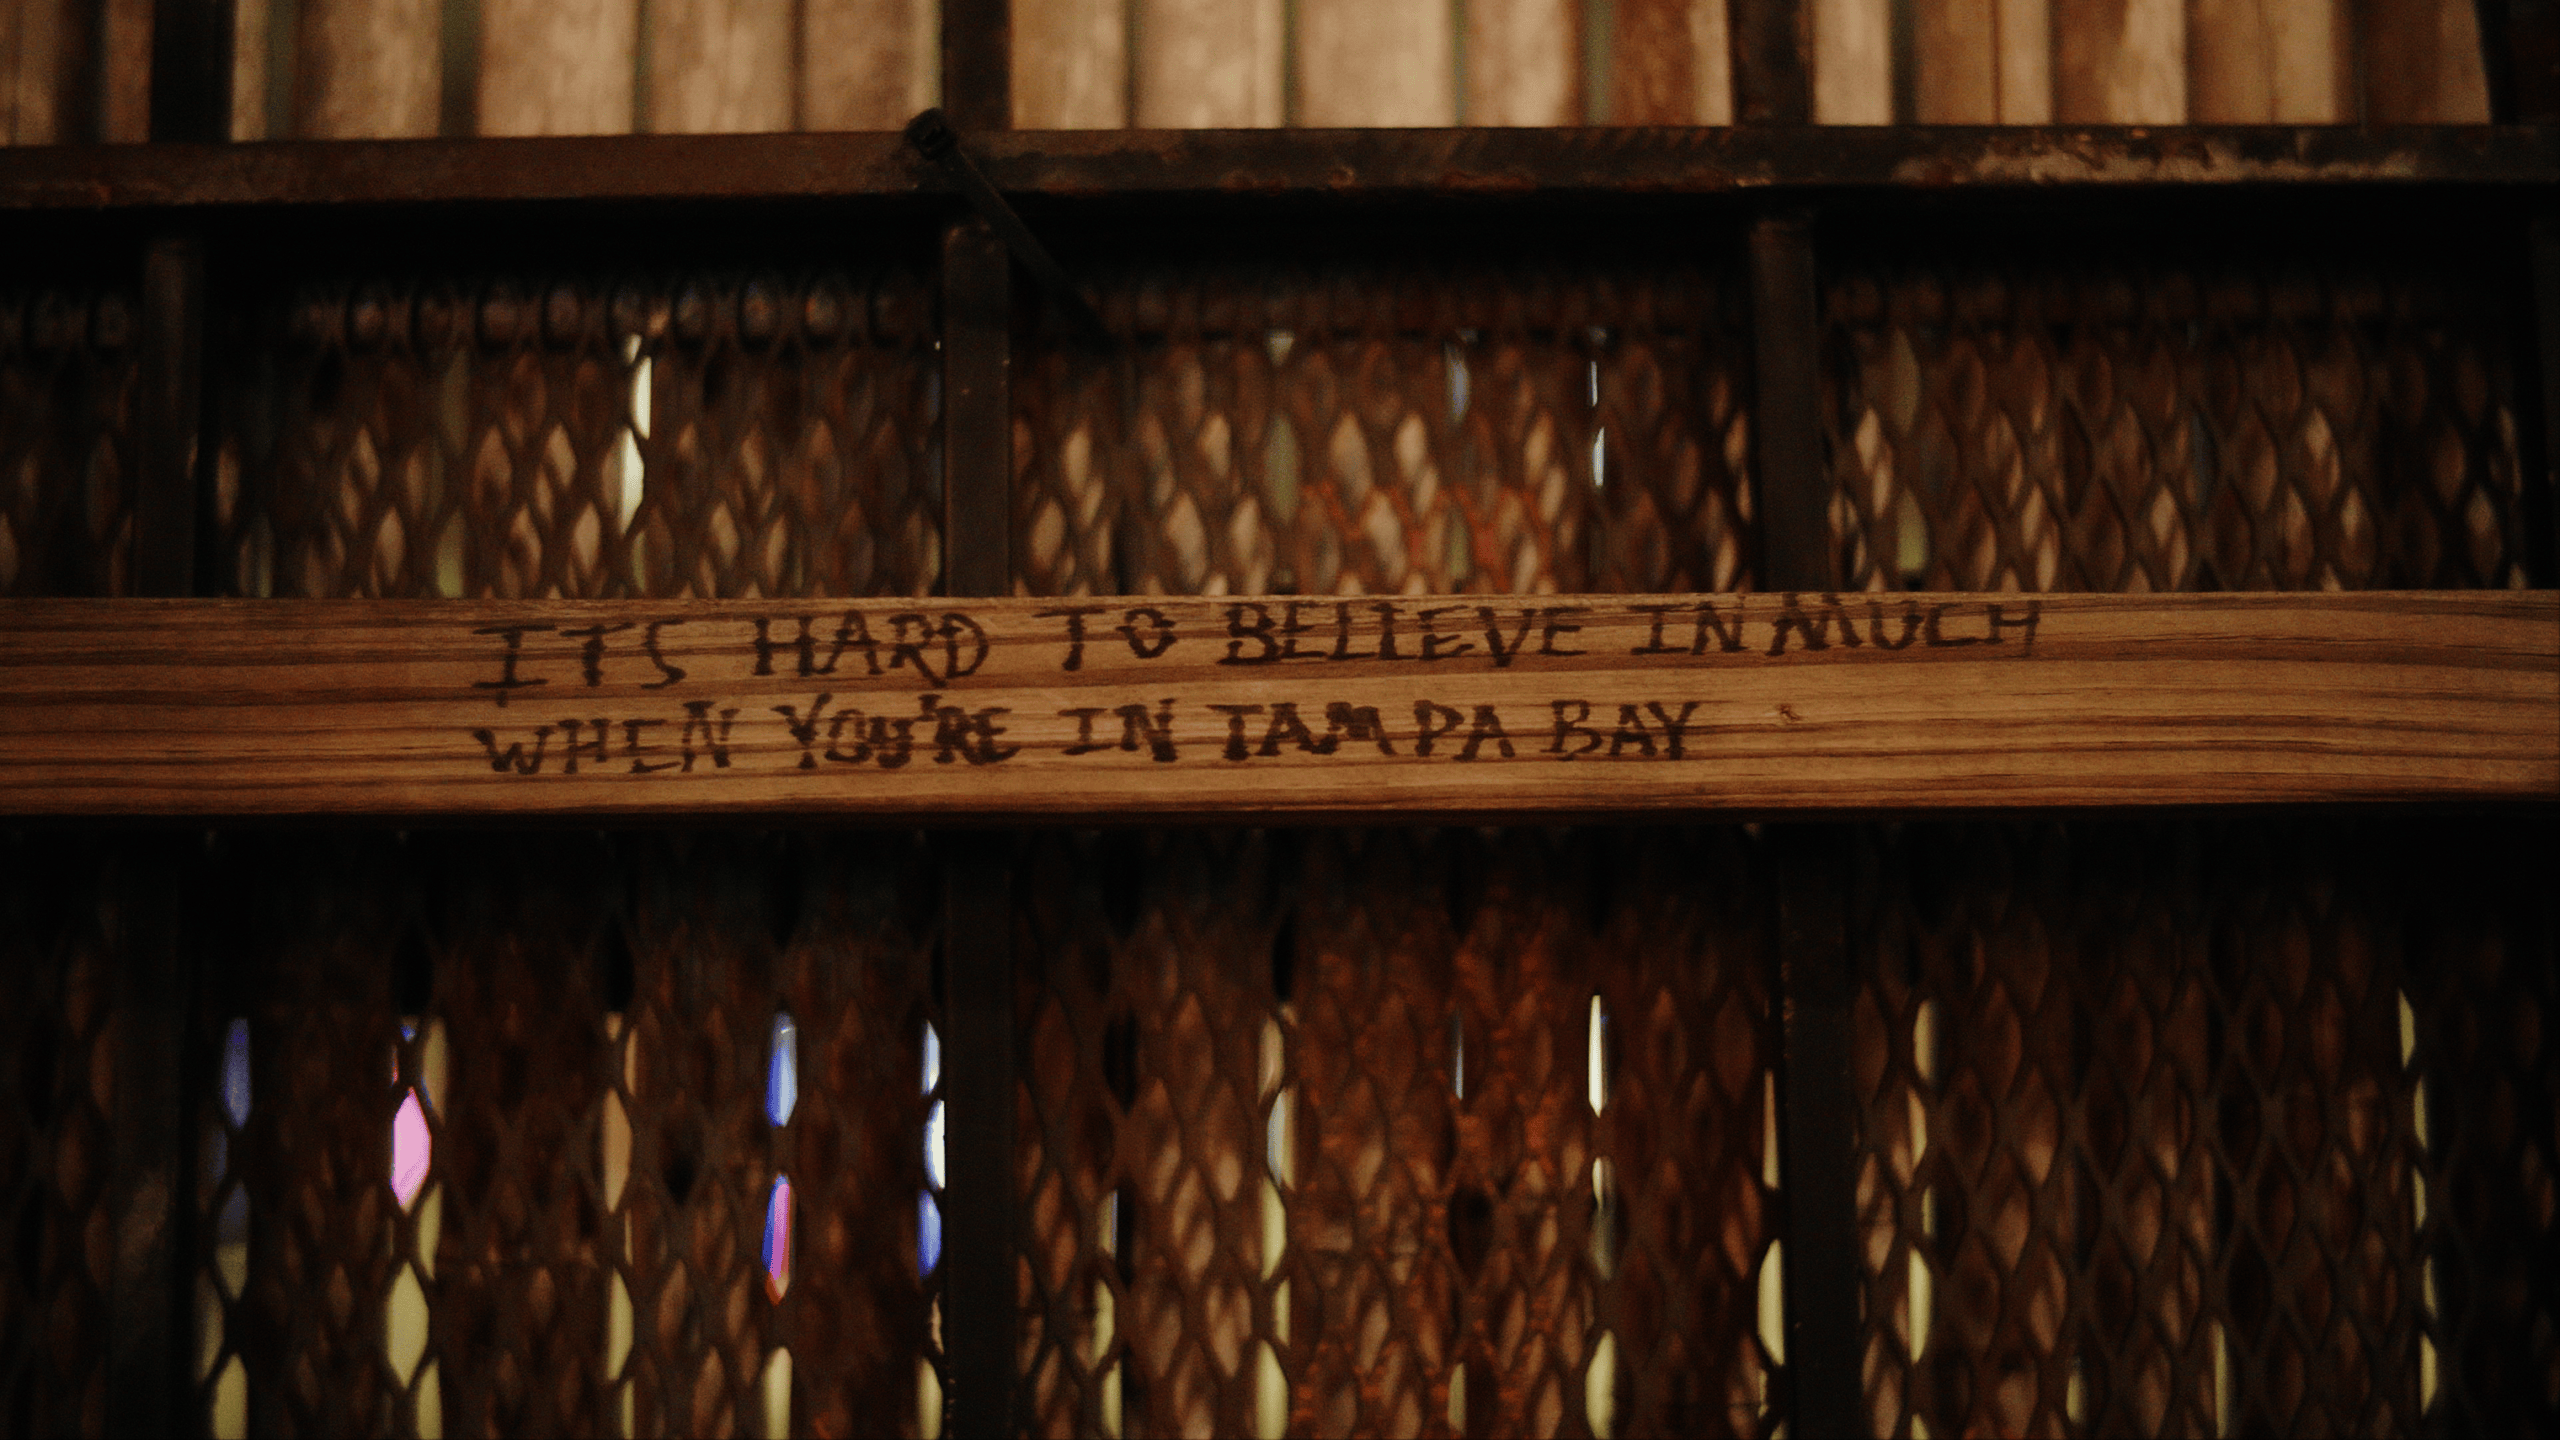 ITS HARD TO BELIEVE IN MUCH
WHEN YOU'RE IN TAMPA BAY